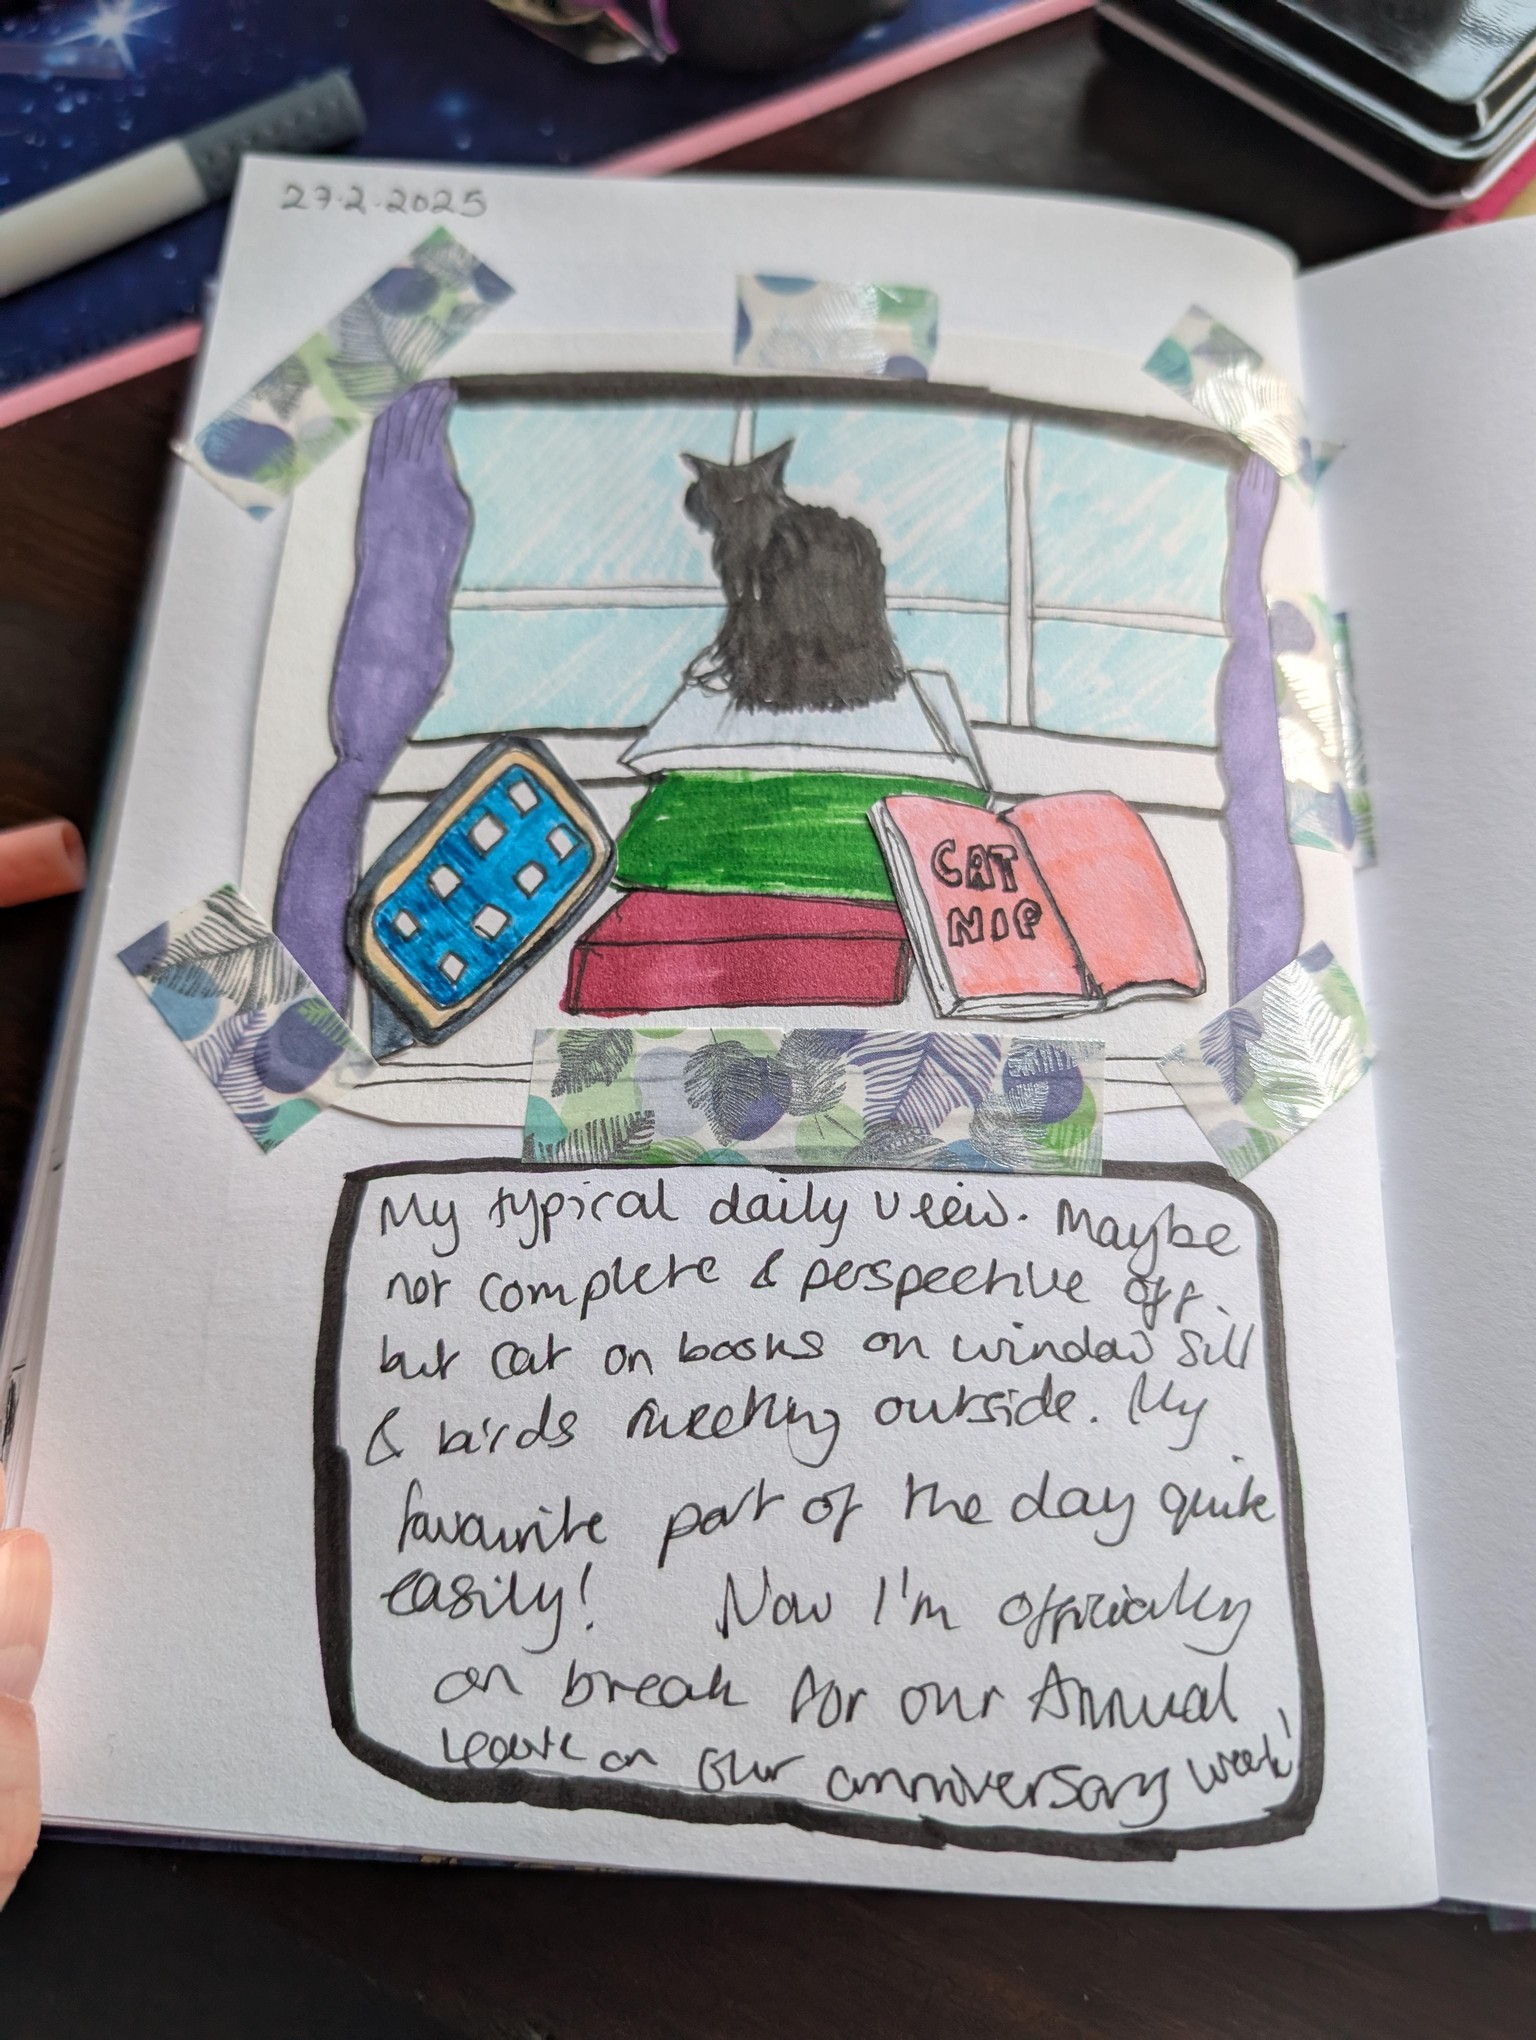 27.2.2025
CAT
NIP
My typical daily veeiw. Maybe
not complete & perspective off.
but cat on books on window sill
& birds meeting outside. My
favourite part of the day quite
easily! Now I'm officially
on break for our Annual
Leave on our anniversary week!